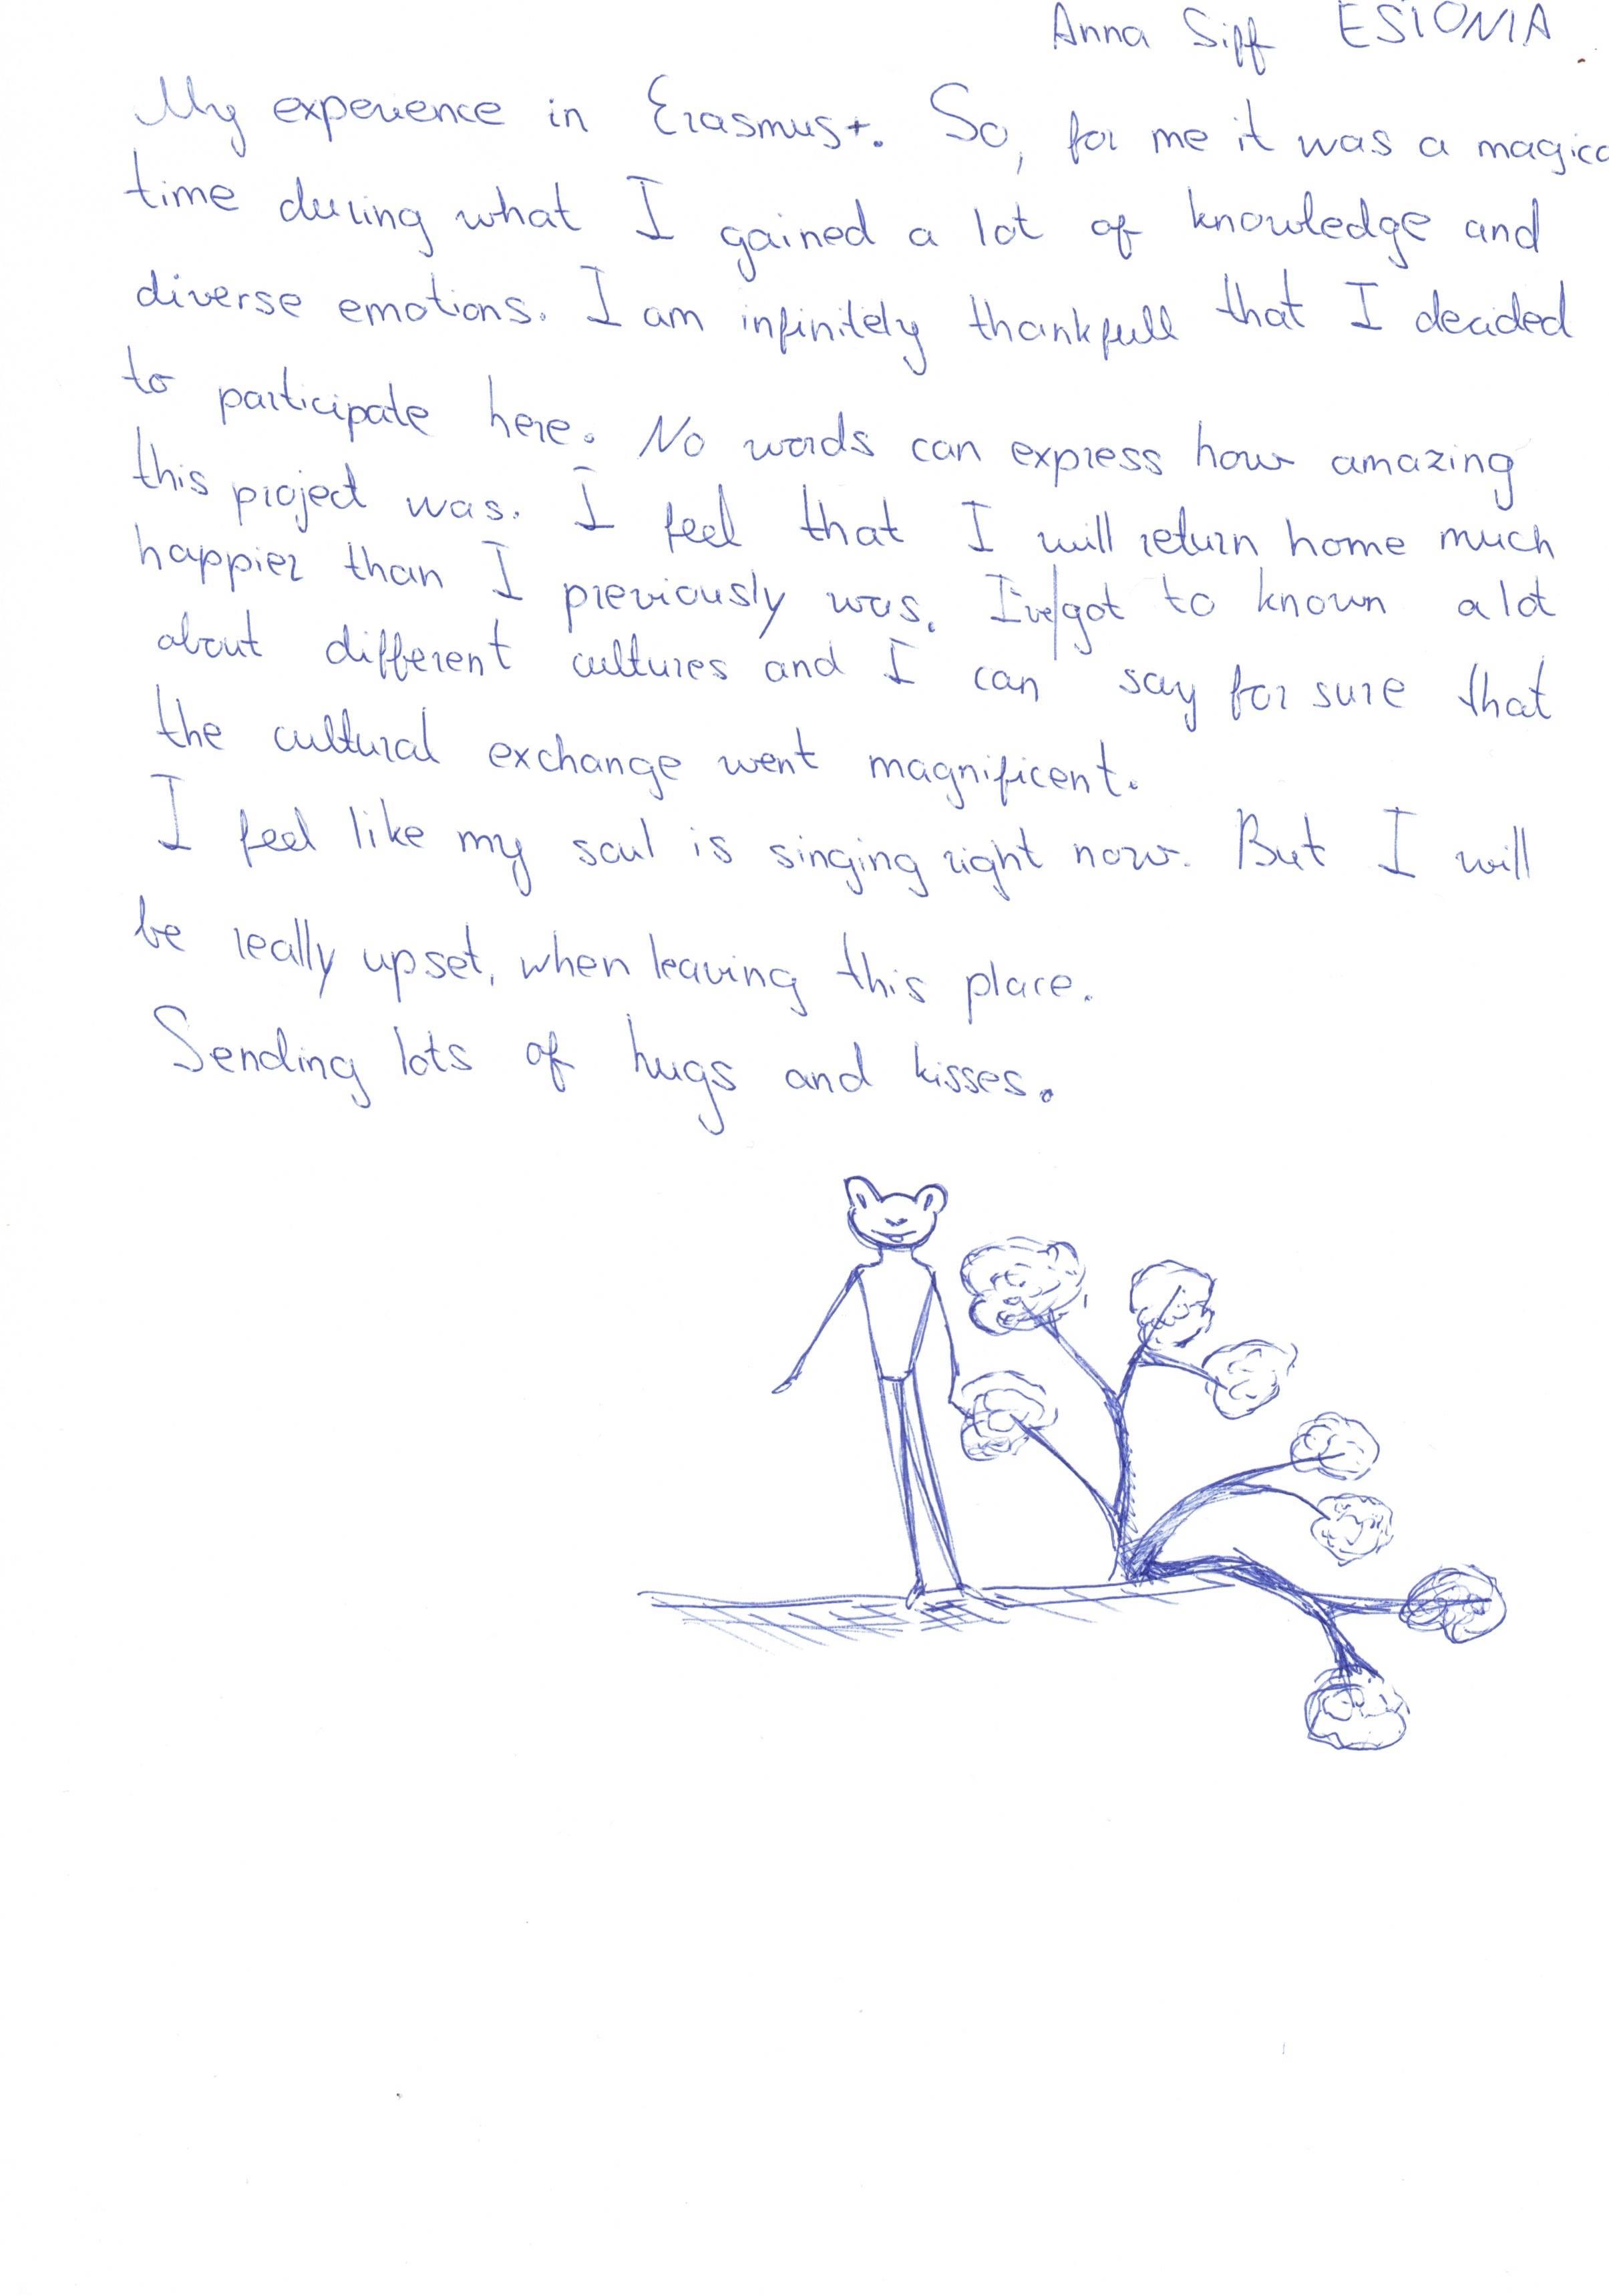 Anna Sipf ESTONIA
My experience in Erasmus+. So, for me it was a magica
time during what I gained a lot of knowledge and
diverse emotions. I am infinitely thankfull that I decided
to participate here. No words can express how amazing
this project was. I feel that I will return home much
happier than I previously was. I've got to known a lot
about different cultures and I can say for sure that
the cultural exchange went magnificent.
I feel like my soul is singing right now. But I will
be really upset, when leaving this place.
Sending lots of hugs and kisses.